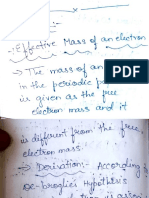 :-
-: Effective Mass of an electron
→ The mass of an
in the periodic p
is given as the free
electron mass and it
is different from the free
electron mass.
→ Derivation:- According
De-broglies Hypothesis